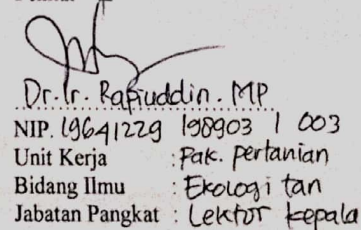 Dr. Ir. Rafiuddin. MP
NIP. 19641229 198903 1 003
Unit Kerja : Fak. pertanian
Bidang Ilmu : Ekologi tan
Jabatan Pangkat : Lektor kepala